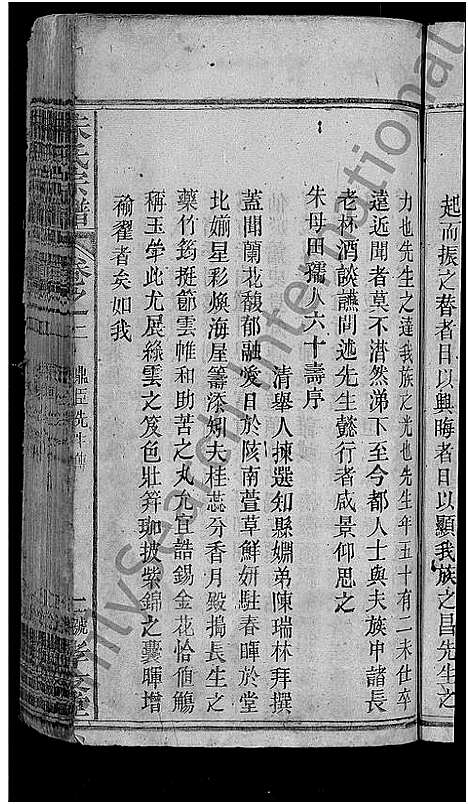 起而振之替者日以興晦者日以顯我族之昌先生之
力也先生之達我族之光也先生年五十有二未仕卒
遠近聞者莫不潸然涕下至今都人士與夫族中諸長
老林酒談讌間述先生懿行者咸景仰思之
朱母田孺人六十壽序
清舉人揀選知縣姻弟陳瑞林拜撰
蓋聞蘭花馥郁融愛日於陔南萱草鮮妍駐春暉於堂
北媊星彩煥海屋籌添矧夫桂蕊分香月殿搗長生之
藥竹筠挺節雲帷和助苦之丸允宜誥錫金花恰值觴
稱玉斝此尤展綠雲之笈色壯笄珈披紫錦之囊暉增
褕翟者矣如我
朱氏宗譜
卷之二
鼎臣先生傳
孝友堂
mysearch International